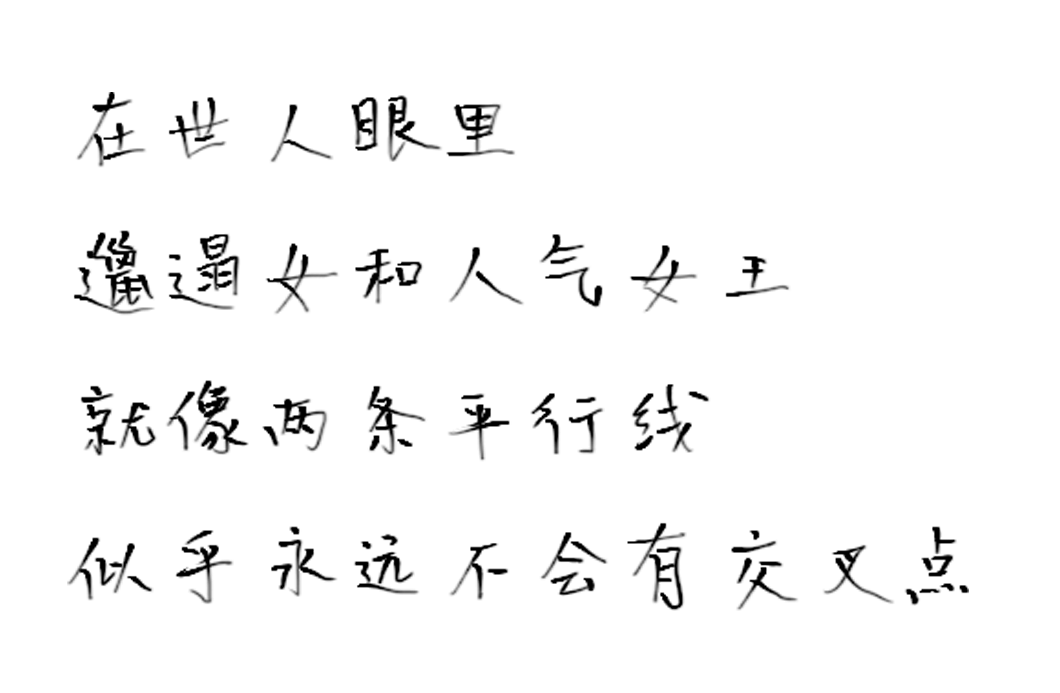 在世人眼里
邋遢女和人气女王
就像两条平行线
似乎永远不会有交叉点